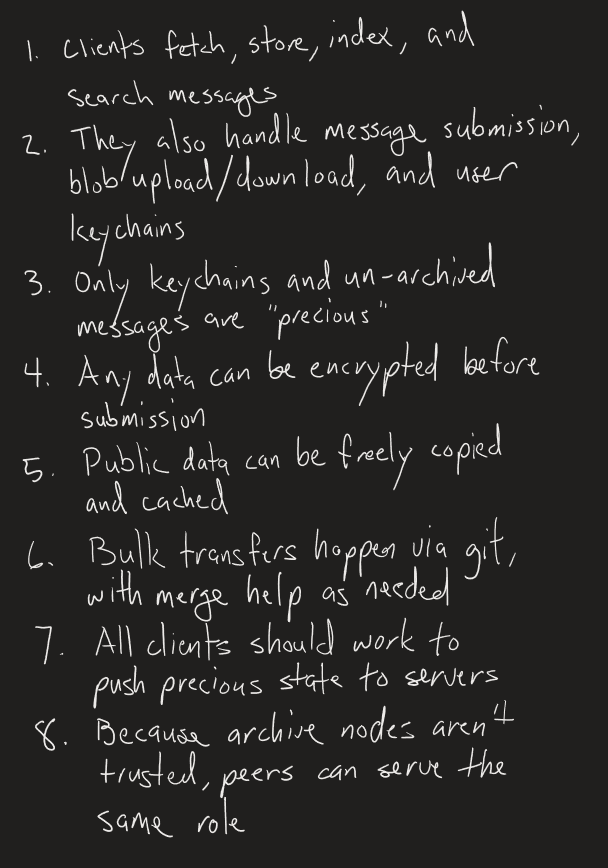 1. Clients fetch, store, index, and
search messages
2. They also handle message submission,
blob upload/download, and user
keychains
3. Only keychains and un-archived
messages are "precious"
4. Any data can be encrypted before
submission
5. Public data can be freely copied
and cached
6. Bulk transfers happen via git,
with merge help as needed
7. All clients should work to
push precious state to servers
8. Because archive nodes aren't
trusted, peers can serve the
same role